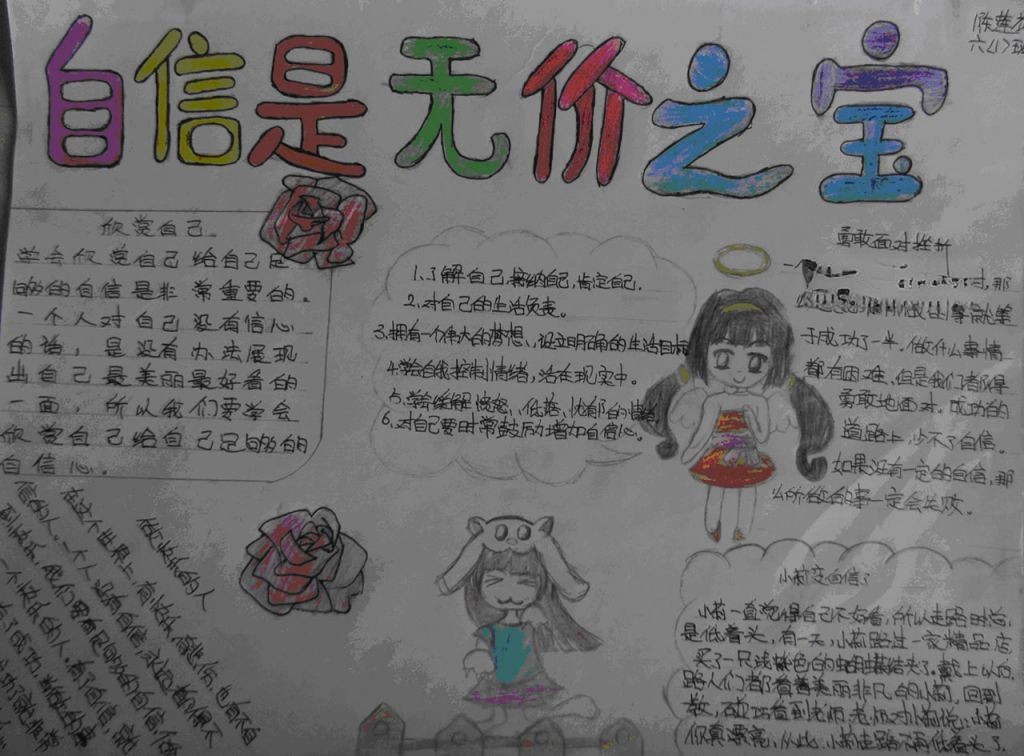 自信是无价之宝
六(1)班
欣赏自己
学会欣赏自己给自己足
够的的自信是非常重要的。
一个人对自己没有信心
的话，是没有办法展现
出自己最美丽最好看的
一面，所以我们要学会
欣赏自己给自己足够的的
自信心。
1.了解自己,接纳自己,肯定自己.
2.对自己的生活负责。
3.拥有一个伟大的梦想、设立明确的生活目标
4.学会自我控制情绪,活在现实中。
5.学会缓解愤怒、低落、忧郁的情绪
6.对自己要时常鼓励增加自信心。
勇敢面对挫折
时,那
于成功了一半,做什么事情
都有困难,但是我们都得
勇敢地面对。成功的
道路上,少不了自信。
如果没有一定的自信,那
么所做的事一定会失败。
做快乐的人
在这个世界上,有快乐,有悲伤,也有自
信的人。一个人没有自信,永远都得不
到快乐,我们要有足够的自信,做
一个快乐的人。有了自信,就
小莉变自信了
小莉一直觉得自己不好看,所以走路时总
是低着头,有一天,小莉路过一家精品店
买了一只浅紫色的蝴蝶结夹了。戴上以后
路人们都看着美丽非凡的小莉,回到
教,碰巧看到老师,老师对小莉说:小莉
你真漂亮,从此,小莉走路不再低着头了